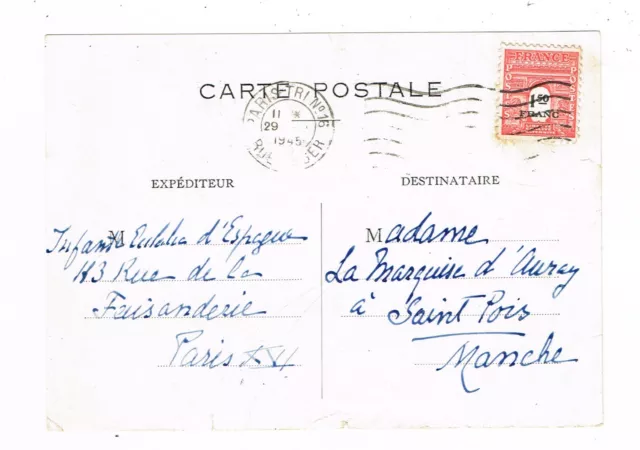 CARTE POSTALE
FRANCE
POS
1 50
FRANC
PARIS TRI No 16
11
29
1945
RUE
EXPÉDITEUR
Infante Eulalia d'Espagne
113 Rue de la
Faisanderie
Paris
DESTINATAIRE
Madame
La Marquise d'Auray
à Saint Pois
Manche